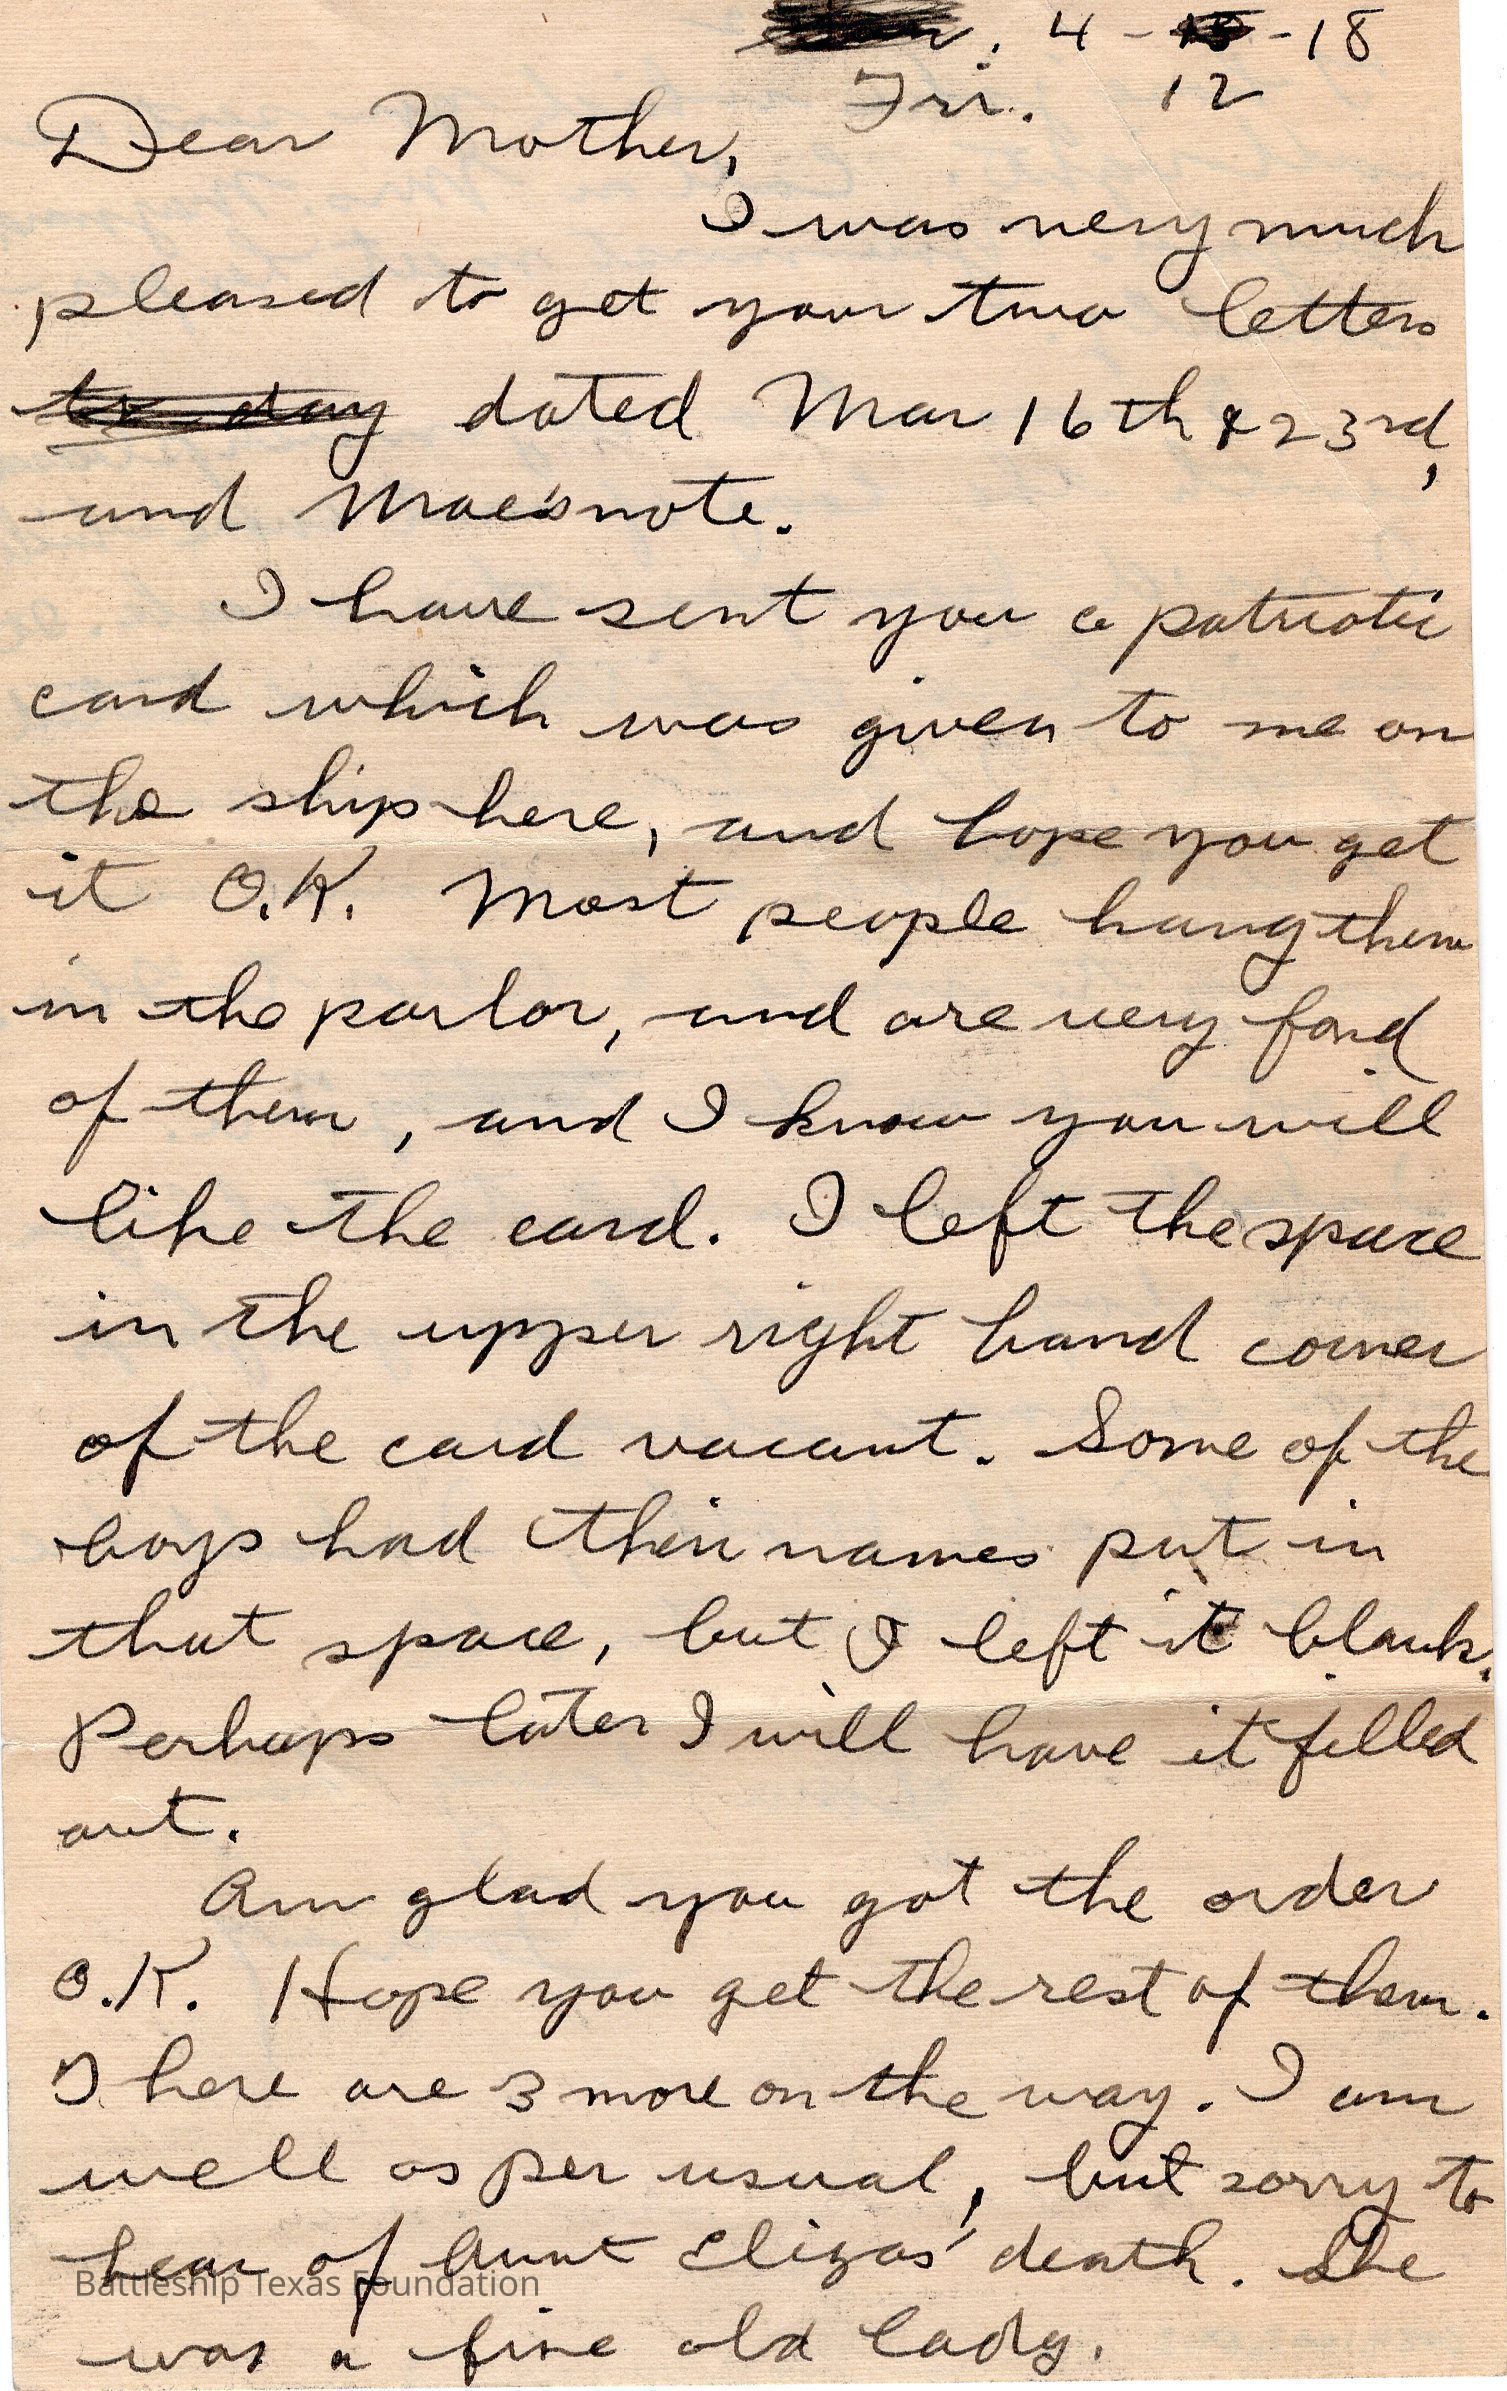 4 - 15 - 18
Fri. 12
Dear Mother,
I was very much
pleased to get your two letters
to-day dated Mar 16th & 23rd,
and Mae's note.
I have sent you a patriotic
card which was given to me on
the ship here, and hope you get
it O.K. Most people hang them
in the parlor, and are very fond
of them, and I know you will
like the card. I left the space
in the upper right hand corner
of the card vacant. Some of the
boys had their names put in
that space, but I left it blank.
Perhaps later I will have it filled
out.
Am glad you got the order
O.K. Hope you get the rest of them.
There are 3 more on the way. I am
well as per usual, but sorry to
hear of Aunt Elizas' death. She
was a fine old lady.
Battleship Texas Foundation